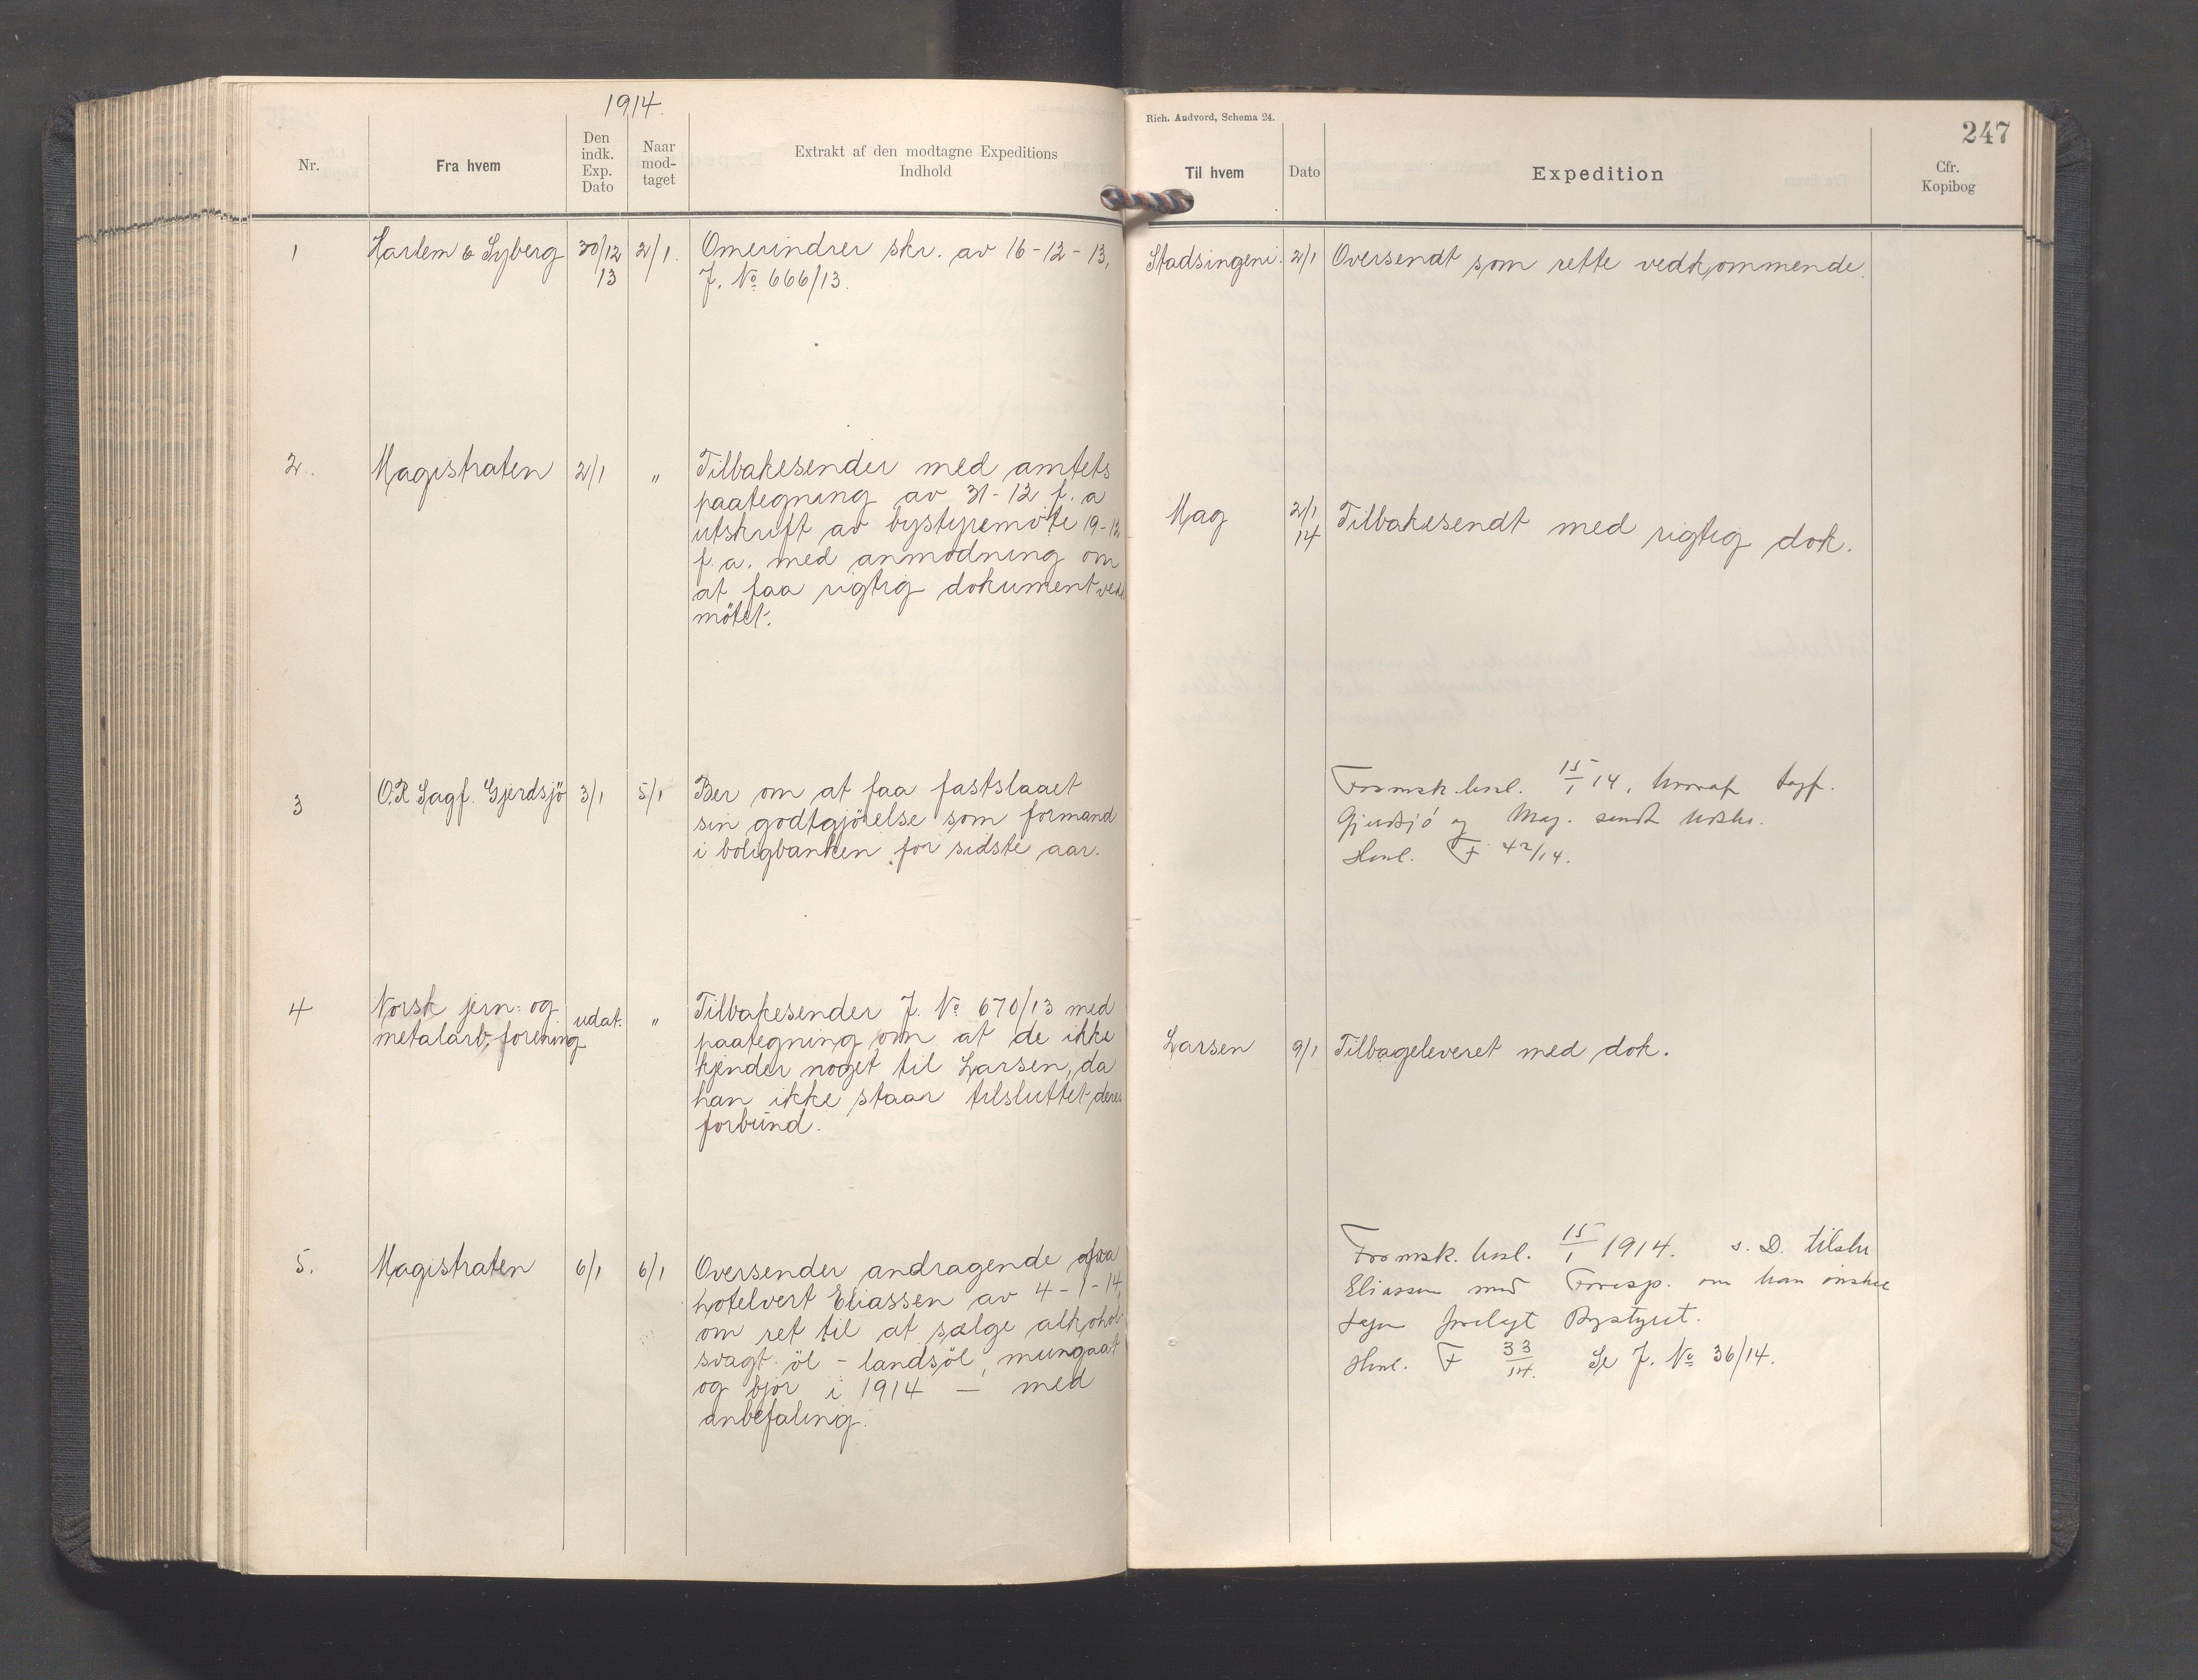 1914.
Nr.
Fra hvem
Den indk. Exp. Dato
Naar mod- taget
Extrakt af den modtagne Expeditions
Indhold
Rich. Andvord, Schema 24.
247
Til hvem
Dato
Expedition
Cfr.
Kopibog
1
Harlem & Syberg
30/12 13
2/1.
Omerindrer skr. av 16-12-13,
J. No 666/13.
Stadsingeni.
2/1
Oversendt som rette vedkommende.
2.
Magistraten
2/1
"
Tilbakesender med amtets
paategning av 31-12 f. a
utskrift av bystyremöte 19-12
f. a. med anmodning om
at faa rigtig dokument ved
mötet.
Mag
2/1 14
Tilbakesendt med rigtig dok.
3
O.R Sagf. Gjerdsjö
3/1
5/1
Ber om at faa fastslaaet
sin godtgjörelse som formand
i boligbanken for sidste aar.
15/1 14,
Gjerdsjö og Mag. sendt
Henl. F 42/14.
4
Norsk jern- og
metalarb. forening
udat.
"
Tilbakesender J. No 670/13 med
paategning om at de ikke
kjender noget til Larsen, da
han ikke staar tilsluttet deres
forbund.
Larsen
9/1
Tilbageleveret med dok.
5.
Magistraten
6/1
6/1
Oversender andragende fra
hotelvert Eliassen av 4-1-14,
om ret til at sælge alkohol-
svagt öl - landsöl, mungaat
og bjor i 1914 - med
anbefaling.
Formsk. 15/1 1914. s. D. tilskr
Eliassen med Foresp. om han önsker
forelagt Bystyret.
Henl. F 33/14. Se J. No 36/14.